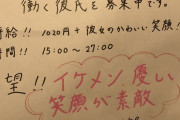 働く彼氏を募集中です。
時給!! 1020円 + 彼女のかわいい笑顔!
時間!! 15:00～27:00
望!!
イケメン 優しい
笑顔が素敵